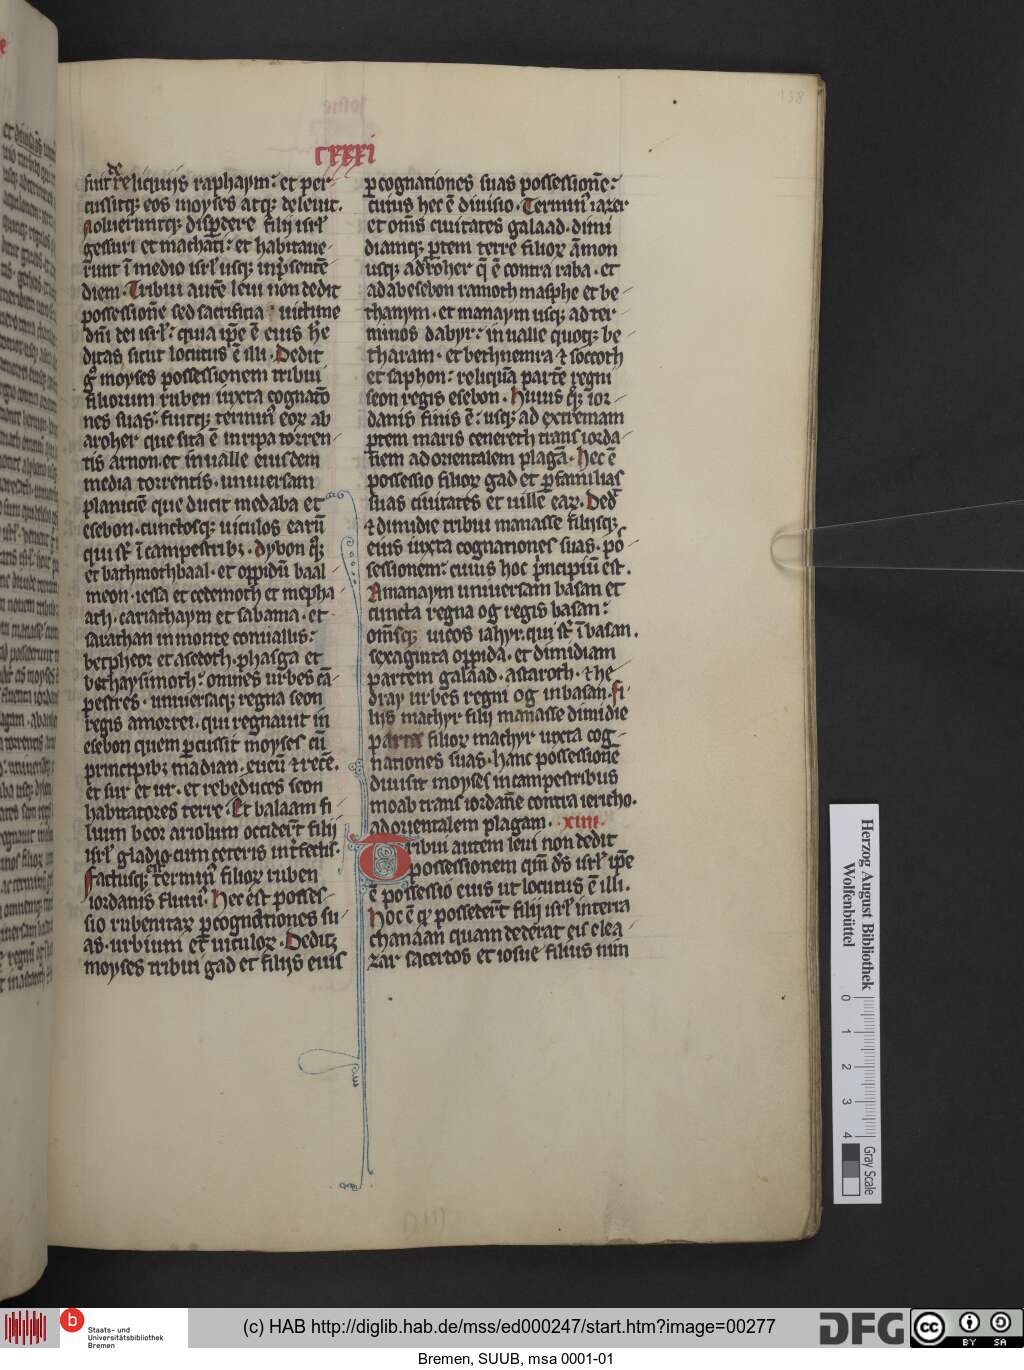 cxxxi
fuit de reliquijs raphaym: et per-
cussitq; eos moyses atq; deleuit.
Nolueruntq; disp̱dere filij isrl̓
gessuri et machati: et habitaue-
r̄unt ī medio isrl̓ usq; in p̄sentē
diem. Tribui autē leui non dedit
possessionē sed sacrificia uictime
dn̄i dei isrl̓: quia ip̄e ē eius he
ditas sicut locutus ē illi. Dedit
gͦ moyses possessionem tribui
filiorum ruben iuxta cognatō
nes suas: fuitq; terminꝰ eoꝝ ab
aroher que sita ē in ripa torren-
tis arnon. et in ualle eiusdem
media torrentis. uniuersam
planiciē que ducit medaba et
esebon. cunctosq; uiculos earū
qui sr̄ ī campestribꝫ. dybon q̄q;
et bathmothbaal. et oppidū baal
meon. iessa et cedemoth et mepha
ath. cariathaym et sabama. et
sarathan in monte conuallis:
betpheor et asedoth. phasga et
bethaysimoth: omnes urbes cā-
pestres. uniuersaq; regna seon
regis amorrei. qui regnauit in
esebon quem ꝑcussit moyses cū
principibꝫ madian. eueū ⁊ recē.
et sur et ur. et rebe duces seon
habitatores terre. Et balaam fi
lium beor ariolum occider̄t filij
isrl̓ gladio. cum ceteris int̓fectis.
Factusq; terminꝰ filioꝝ ruben
iordanis fluuiꝰ. Hec est posses-
sio rubenitaꝝ ꝑ cognationes su-
as. urbium et uiculoꝝ. Deditq;
moyses tribui gad et filijs eius
ꝑ cognationes suas possessionē:
cuius hec ē diuisio. Terminꝰ iazer
et oms̄ ciuitates galaad. dimi
diamq; ꝑtem terre filioꝝ āmon
usq; ad roher q̄ ē contra raba. et
ad ab esebon ramoth masphe et be-
thanym. et manaym usq; ad ter-
minos dabyr: in ualle quoq; be-
tharam. et bethnemra ⁊ soccoth
et saphon: reliquā partē regni
seon regis esebon. Huius q̄q; ior-
danis finis ē: usq; ad extremam
ꝑtem maris cenereth trans iorda-
nem ad orientalem plagā. Hec ē
possessio filioꝝ gad et ꝑ familias
suas ciuitates et uille eaꝝ. Ded̄
⁊ dimidie tribui manasse filijsq;
eius iuxta cognationes suas. pō-
sessionem: cuius hoc p̄ncipiū est.
Amanaym uniuersam basan et
cuncta regna og regis basan:
om̄sq; uicos iahyr. qui sr̄ ī basan.
sexaginta oppida. et dimidiam
partem galaad. astaroth. ⁊ he-
dray urbes regni og in basan. fi-
lijs machyr filij manasse dimidie
partis filioꝝ machyr iuxta cog-
nationes suas. hanc possessionē
diuisit moyses in campestribus
moab trans iordanē contra iericho.
ad orientalem plagam. xiiii.
Tribui autem leui non dedit
possessionem qm̄ ds̄ isrl̓ ip̄e
ē possessio eius ut locutus ē illi.
Hoc ē qͦ posseder̄t filij isrl̓ in terra
chanaan quam dederat eis elea-
zar sacerdos et iosue filius nun
138
Herzog August Bibliothek
Wolfenbüttel
0
1
2
3
4
Gray Scale
b
Staats- und
Universitätsbibliothek
Bremen
(c) HAB http://diglib.hab.de/mss/ed000247/start.htm?image=00277
DFG
cc
BY SA
Bremen, SUUB, msa 0001-01